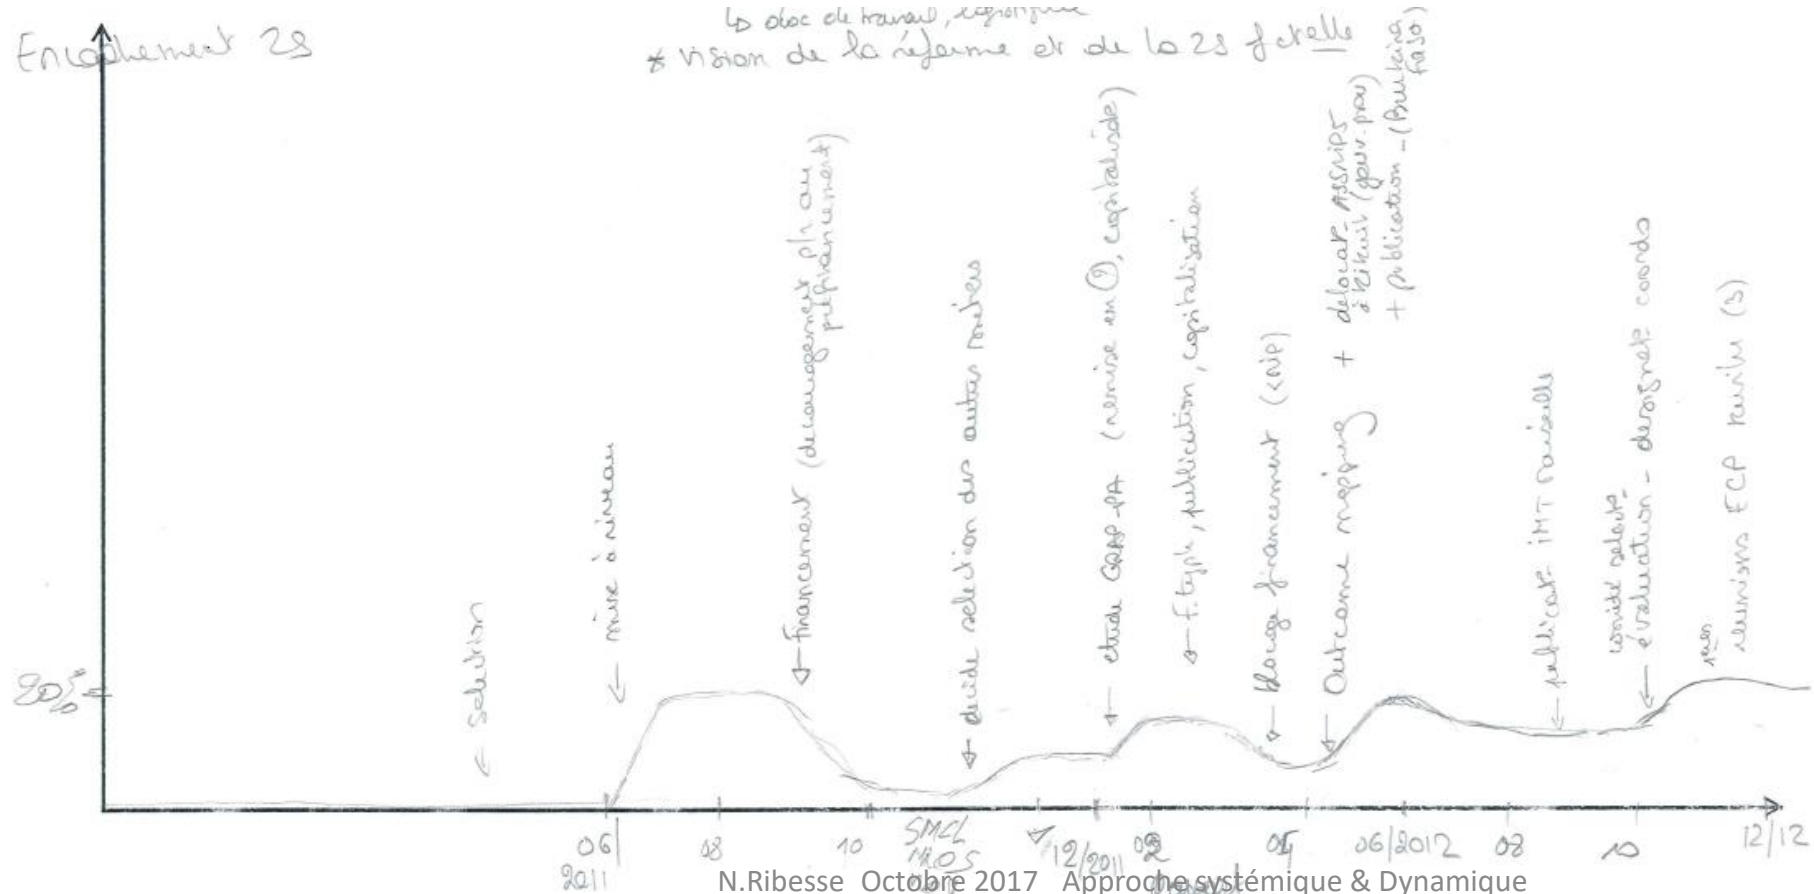 doc de travail,
Encadrement 2S
* vision de la réforme et de la 2S fctelle
20%
← selection
← mise à niveau
← Financement (decouragement ph au
préfinancement)
← decide selection des autres
← etude GRAP-PA (remise en ?, capitalisée)
← F. typh, publication, capitalisation
← blocage financement
← Outcome mapping + délocat- ASSNIPS
à Kikwit (gouv. prov)
+ publication - (Burkina
Faso)
← publicat- IMT
comité select-
← évaluation - designat- coords
1ères
réunions ECP Kwilu (3)
06/
2011
08
10
SMCL
12/2011
02
04
06/2012
08
10
12/12
N.Ribesse Octobre 2017 Approche systémique & Dynamique